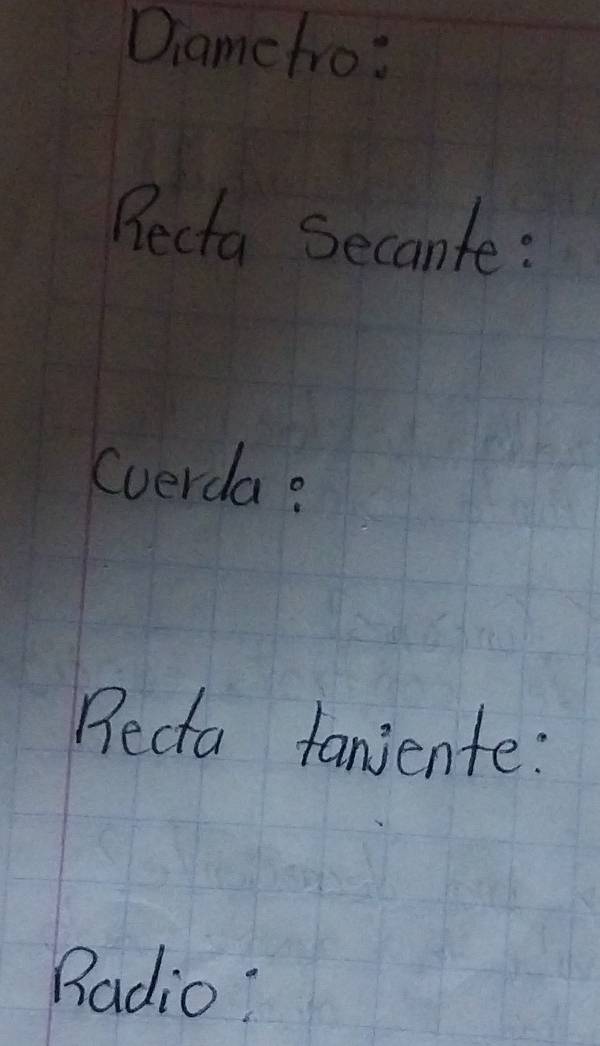 Diametro:
Recta Secante:
Cuerda:
Recta tanjente:
Radio: